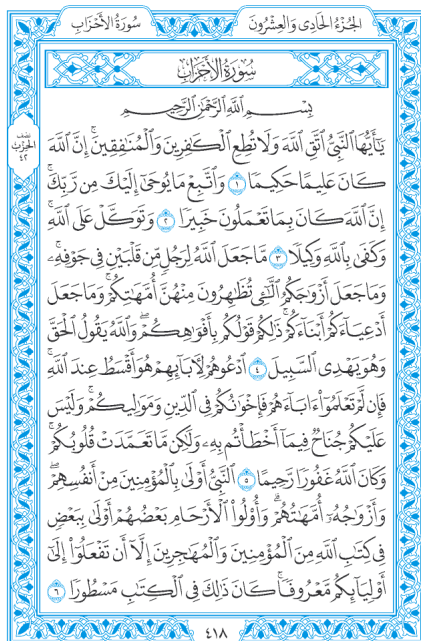 سُورَةُ الأَحْزَابِ
الجُزْءُ الحَادِى وَالعِشْرُونَ
سُورَةُ الأَحْزَابِ
بِسْمِ ٱللَّهِ ٱلرَّحْمَٰنِ ٱلرَّحِيمِ
يَٰٓأَيُّهَا ٱلنَّبِىُّ ٱتَّقِ ٱللَّهَ وَلَا تُطِعِ ٱلْكَٰفِرِينَ وَٱلْمُنَٰفِقِينَۚ إِنَّ ٱللَّهَ
نصف
الحِزْب
٤٢
كَانَ عَلِيمًا حَكِيمًا ١ وَٱتَّبِعْ مَا يُوحَىٰٓ إِلَيْكَ مِن رَّبِّكَۚ
إِنَّ ٱللَّهَ كَانَ بِمَا تَعْمَلُونَ خَبِيرًا ٢ وَتَوَكَّلْ عَلَى ٱللَّهِۚ
وَكَفَىٰ بِٱللَّهِ وَكِيلًا ٣ مَّا جَعَلَ ٱللَّهُ لِرَجُلٍ مِّن قَلْبَيْنِ فِى جَوْفِهِۦۚ
وَمَا جَعَلَ أَزْوَٰجَكُمُ ٱلَّٰٓـِٔى تُظَٰهِرُونَ مِنْهُنَّ أُمَّهَٰتِكُمْۚ وَمَا جَعَلَ
أَدْعِيَآءَكُمْ أَبْنَآءَكُمْۚ ذَٰلِكُمْ قَوْلُكُم بِأَفْوَٰهِكُمْۖ وَٱللَّهُ يَقُولُ ٱلْحَقَّ
وَهُوَ يَهْدِى ٱلسَّبِيلَ ٤ ٱدْعُوهُمْ لِءَابَآئِهِمْ هُوَ أَقْسَطُ عِندَ ٱللَّهِۚ
فَإِن لَّمْ تَعْلَمُوٓا۟ ءَابَآءَهُمْ فَإِخْوَٰنُكُمْ فِى ٱلدِّينِ وَمَوَٰلِيكُمْۚ وَلَيْسَ
عَلَيْكُمْ جُنَاحٌ فِيمَآ أَخْطَأْتُم بِهِۦ وَلَٰكِن مَّا تَعَمَّدَتْ قُلُوبُكُمْۚ
وَكَانَ ٱللَّهُ غَفُورًا رَّحِيمًا ٥ ٱلنَّبِىُّ أَوْلَىٰ بِٱلْمُؤْمِنِينَ مِنْ أَنفُسِهِمْۖ
وَأَزْوَٰجُهُۥٓ أُمَّهَٰتُهُمْۗ وَأُو۟لُوا۟ ٱلْأَرْحَامِ بَعْضُهُمْ أَوْلَىٰ بِبَعْضٍ
فِى كِتَٰبِ ٱللَّهِ مِنَ ٱلْمُؤْمِنِينَ وَٱلْمُهَٰجِرِينَ إِلَّآ أَن تَفْعَلُوٓا۟ إِلَىٰٓ
أَوْلِيَآئِكُم مَّعْرُوفًاۚ كَانَ ذَٰلِكَ فِى ٱلْكِتَٰبِ مَسْطُورًا ٦
٤١٨